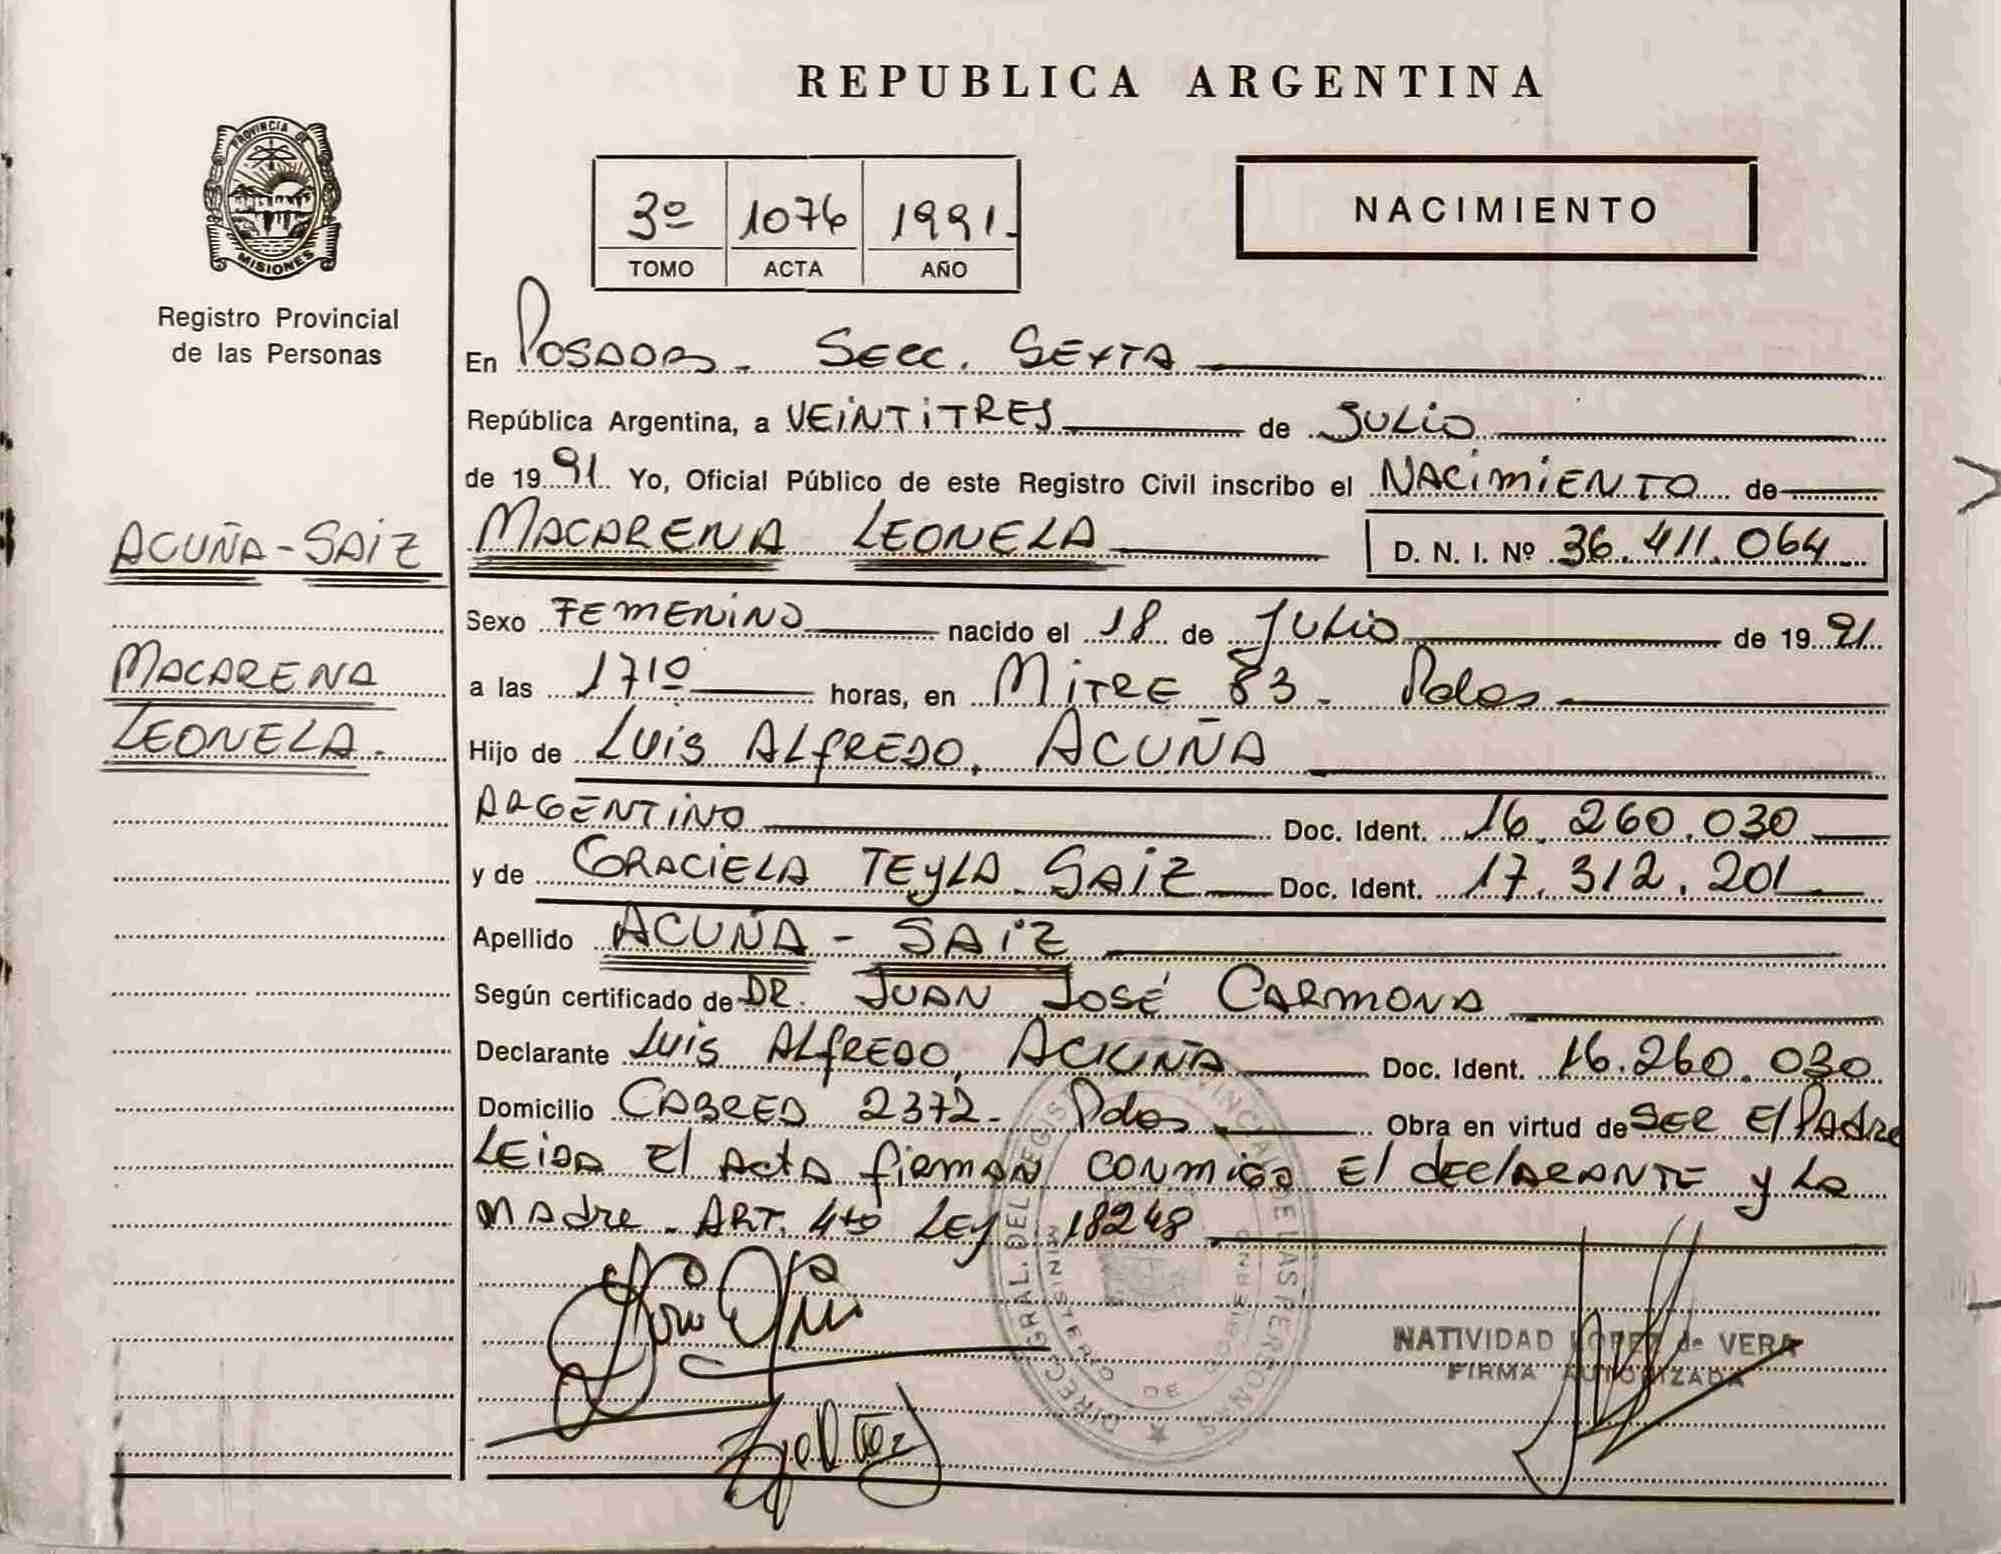 REPUBLICA ARGENTINA
PROVINCIA DE
MISIONES
Registro Provincial
de las Personas
3º 1076 1991.
TOMO ACTA AÑO
NACIMIENTO
En Posadas - Secc. Sexta
República Argentina, a VEINTITRES de JULIO
de 1991 Yo, Oficial Público de este Registro Civil inscribo el NACIMIENTO de
ACUÑA-SAIZ
MACARENA LEONELA D. N. I. Nº 36.411.064
Sexo FEMENINO nacido el 18 de JULIO de 1991
MACARENA
LEONELA.
a las 17 10 horas, en MITRE 83 - Pdas
Hijo de LUIS ALFREDO, ACUÑA
ARGENTINO Doc. Ident. 16.260.030
y de GRACIELA TEYLA SAIZ Doc. Ident. 17.312.201
Apellido ACUÑA - SAIZ
Según certificado de DR. JUAN JOSÉ CARMONA
Declarante LUIS ALFREDO, ACUÑA Doc. Ident. 16.260.030
Domicilio CABRED 2372- Pdas Obra en virtud de SER El PAdre
LEIDA El ActA firman conmigo El declARANTE y La
MAdre - ART. 4to LEy 18248
DIRECC. GRAL. DEL REGIS PROVINCIAL DE LAS PERSONAS
MINISTERIO DE GOBIERNO
NATIVIDAD LOPEZ de VERA
FIRMA AUTORIZADA